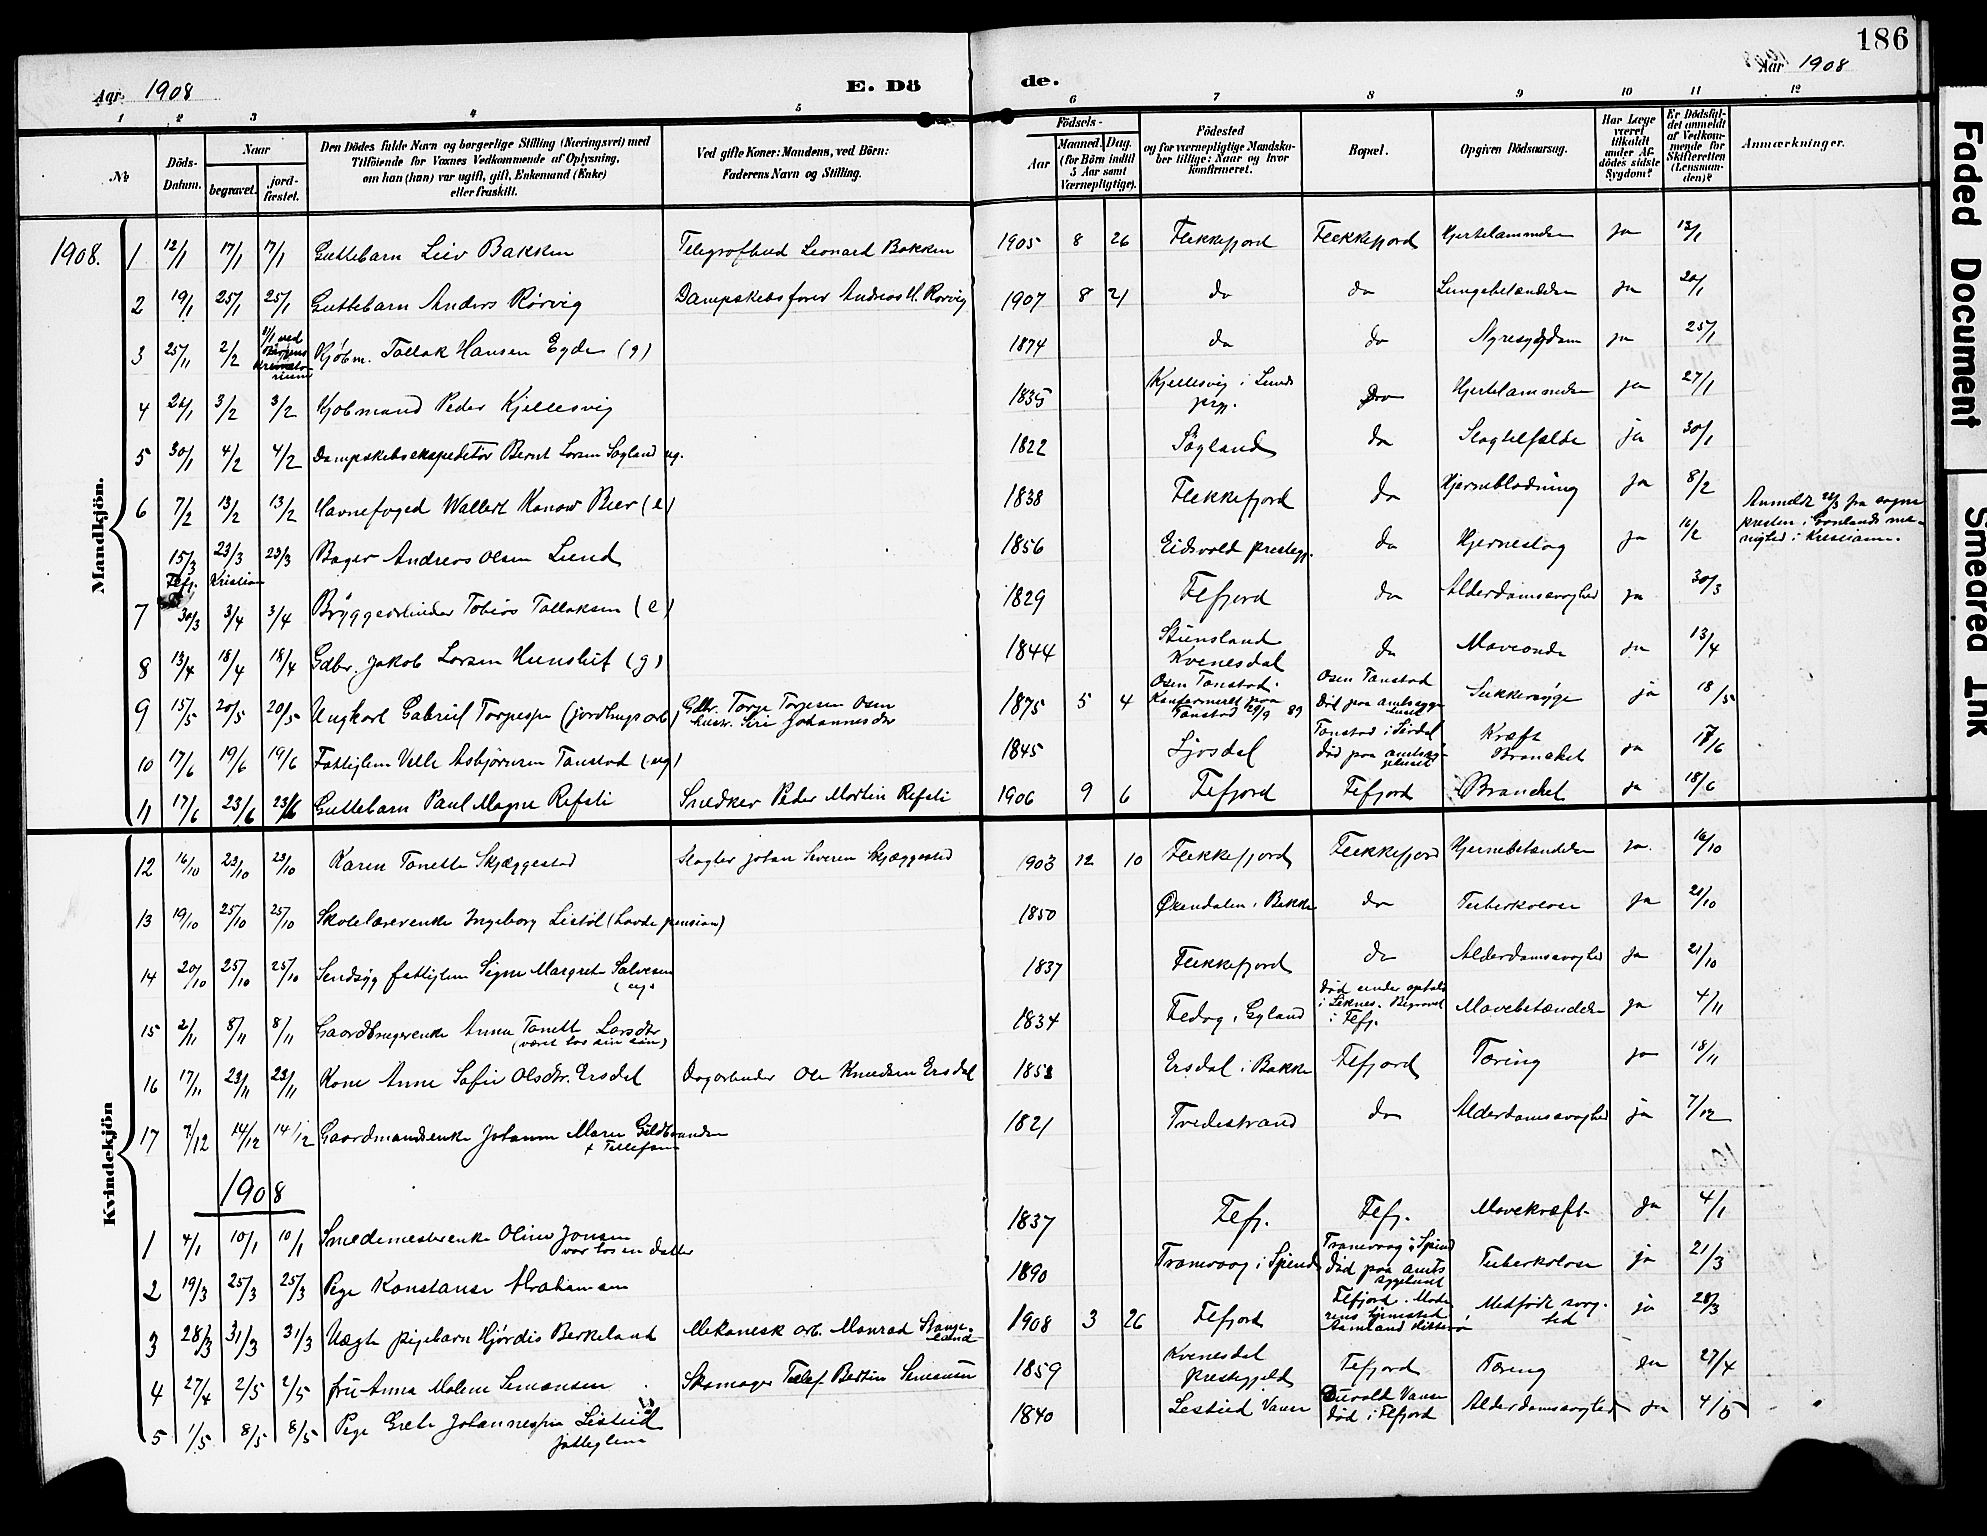 186
Aar 1908
E. Dö
de.
Aar 1908
1 2 3 4 5 6 7 8 9 10 11 12
№
Döds-Datum.
Naar
begravet.
jord-fæstet.
Den Dödes fulde Navn og borgerlige Stilling (Næringsvei) med
Tilföiende for Voxnes Vedkommende af Oplysning,
om han (hun) var ugift, gift, Enkemand (Enke)
eller fraskilt.
Ved gifte Koner: Mandens, ved Börn:
Faderens Navn og Stilling.
Födsels-
Aar
Maaned. Dag.
(for Börn indtil
5 Aar samt
Værnepligtige).
Födested
og for værnepligtige Mandska-
ber tillige: Naar og hvor
konfirmeret.
Bopæl.
Opgiven Dödsaarsag.
Har Læge
været
tilkaldt
under Af-
dödes sidste
Sygdom?
Er Dödsfal-
det anmeldt
af Vedkom-
mende for
Skifteretten
(Lensman-
den)?
Anmærkninger.
Mandkjön.
1908.
1 12/1 17/1 17/1 Guttebarn Leiv Bakken Telegrafbud Leonard Bakken 1905 8 26 Flekkefjord Flekkefjord Hjertelammelse ja 13/1
2 19/1 25/1 25/1 Guttebarn Anders Rörvig Dampskibsförer Andreas H. Rörvig 1907 8 21 do do Lungebetændelse ja 20/1
3 2/2 ved Bergens Krematorium Kjöbm. Tallak Hansen Eyde (g) 1874 do do Nyresygdom ja 25/1
4 3/2 3/2 Kjöbmand Peder Kjellesvig 1835 Kjellesvig i Lunds prgj. Do Hjertelammelse ja 27/1
5 30/1 4/2 4/2 Dampskibsexpeditör Bernt Larsen Sögland ug. 1822 Sögland do Slagtilfælde ja 30/1
6 7/2 13/2 13/2 Havnefoged Wallert Konow Bier (e) 1838 Flekkefjord do Hjerneblödning ja 8/2
Anmeldt 22/3 fra sogne
presten i Grönlands me-
nighed i Kristiania.
15/3 23/3 23/3 Bager Andreas Olsen Lund 1856 Eidsvold prestegj. do Hjerneslag ja 16/2
Fefj. Kristian
7 30/3 3/4 3/4 Bryggearbeider Tobias Tallaksen (e) 1829 Fefjord do Alderdomssvaghed ja 30/3
8 13/4 18/4 18/4 Gdbr. Jakob Larsen Hunsluf (g) 1844 Stunsland Kvinesdal do Maveonde ja 13/4
9 15/5 20/5 20/5 Ungkarl Gabriel Torgesen (jordbrugsarb) Gdbr. Torge Torgesen Osen hustr. Siri Johannesdtr 1875 5 4 Osen Tonstad. Konfirmeret fra Tonstad 29/9 89 Osen Tonstad död paa amtssygehuset Sukkersyge ja 18/5
10 17/6 19/6 19/6 Fattiglem Velle Asbjörnsen Tonstad (ug) 1845 Ljosdal Tonstad i Sirdal död paa amtssygehuset Kræft Brancket ja 17/6
11 17/6 23/6 23/6 Guttebarn Paul Magne Refsti Snedker Peder Martin Refsti 1906 9 6 Fefjord Fefjord Branchet ja 18/6
Kvindekjön
12 16/10 23/10 23/10 Karen Tonette Skjæggestad Slagter Johan Severin Skjæggestad 1903 12 10 Flekkefjord Flekkefjord Hjernebetændelse ja 16/10
13 19/10 25/10 25/10 Skolelærerenke Ingeborg Listöl (havde pension) 1850 Öxendalen i Bakke do Tuberkolose ja 21/10
14 20/10 25/10 25/10 Sindsyg fattiglem Signe Margret Salvesen (ug. 1837 Flekkefjord do Alderdomssvaghed ja 21/10
15 2/11 8/11 8/11 Gaardbrugerenke Anna Tonette Larsdtr. (været hos sin sön) 1834 Fedog i Gyland död under ophold i Liknes. Begravet i Fefj. Mavebetændelse ja 4/11
16 17/11 23/11 23/11 Kone Anne Sofie Olsdtr. Ersdal Dagarbeider Ole Knudsen Ersdal 1853 Ersdal i Bakke Fefjord Tæring ja 18/11
17 7/12 14/12 14/12 Gaardmandsenke Johanne Marie Gildbrandsen + Tellefsen 1821 Tvedestrand do Alderdomssvaghed ja 7/12
1908
1 4/1 10/1 10/1 Smedemesterenke Oline Jonsen var hos en datter 1837 Fefj. Fefj. Mavekræft ja 4/1
2 19/3 25/3 25/3 Pige Konstanse Abrahamsen 1890 Tranevaag i Spind Tranevaag i Spind död paa amts sygehuset Tuberkolose ja 21/3
3 28/3 31/3 31/3 Uægte pigebarn Hjördis Berkeland Mekanesk arb. Monrad Stangeland 1908 3 26 Fefjord Fefjord. Moderens hjemsted Aamland Hitterö Medfödt svaghed ja 28/3
4 27/4 2/5 2/5 fru Anna Malene Simonsen Skomager Tellef Bertin Simonsen 1859 Kvinesdal Prestegjeld Fefjord Tæring ja 27/4
5 1/5 8/5 8/5 Pige Grete Johannesen Listeid fattiglem 1840 Listeid Vanse Vanse död i Fefjord Alderdomssvaghed ja 4/5
Faded Document
Smeared Ink